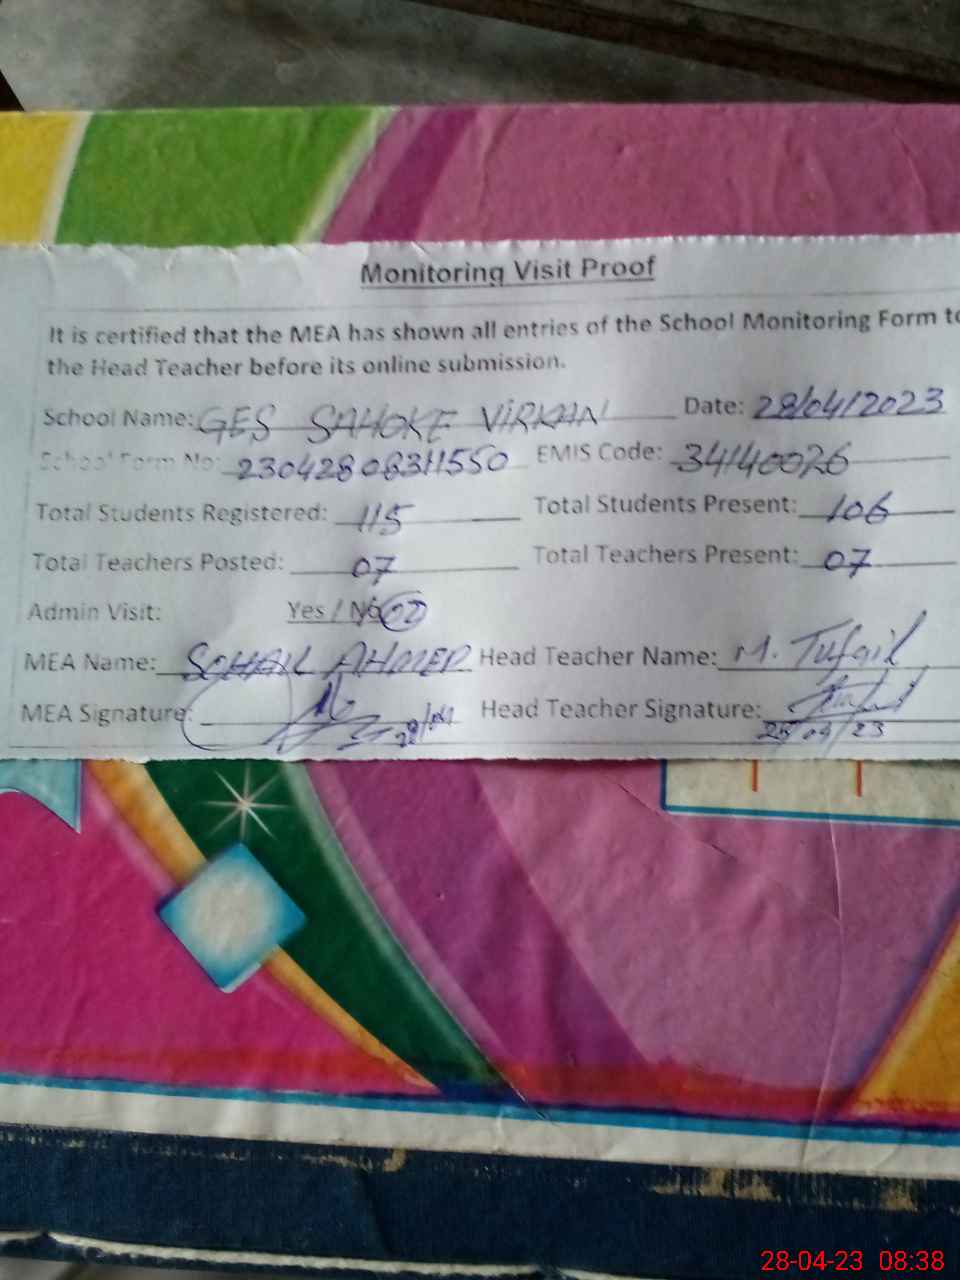 Monitoring Visit Proof
It is certified that the MEA has shown all entries of the School Monitoring Form to
the Head Teacher before its online submission.
School Name: GES SAHOKE VIRKAN Date: 28/04/2023
School Form No: 23042808311550 EMIS Code: 34140026
Total Students Registered: 115 Total Students Present: 106
Total Teachers Posted: 07 Total Teachers Present: 07
Admin Visit: Yes / No 02
MEA Name: SOHAIL AHMED Head Teacher Name: M. Tufail
MEA Signature: 28/04 Head Teacher Signature:
28/04/23
28-04-23 08:38